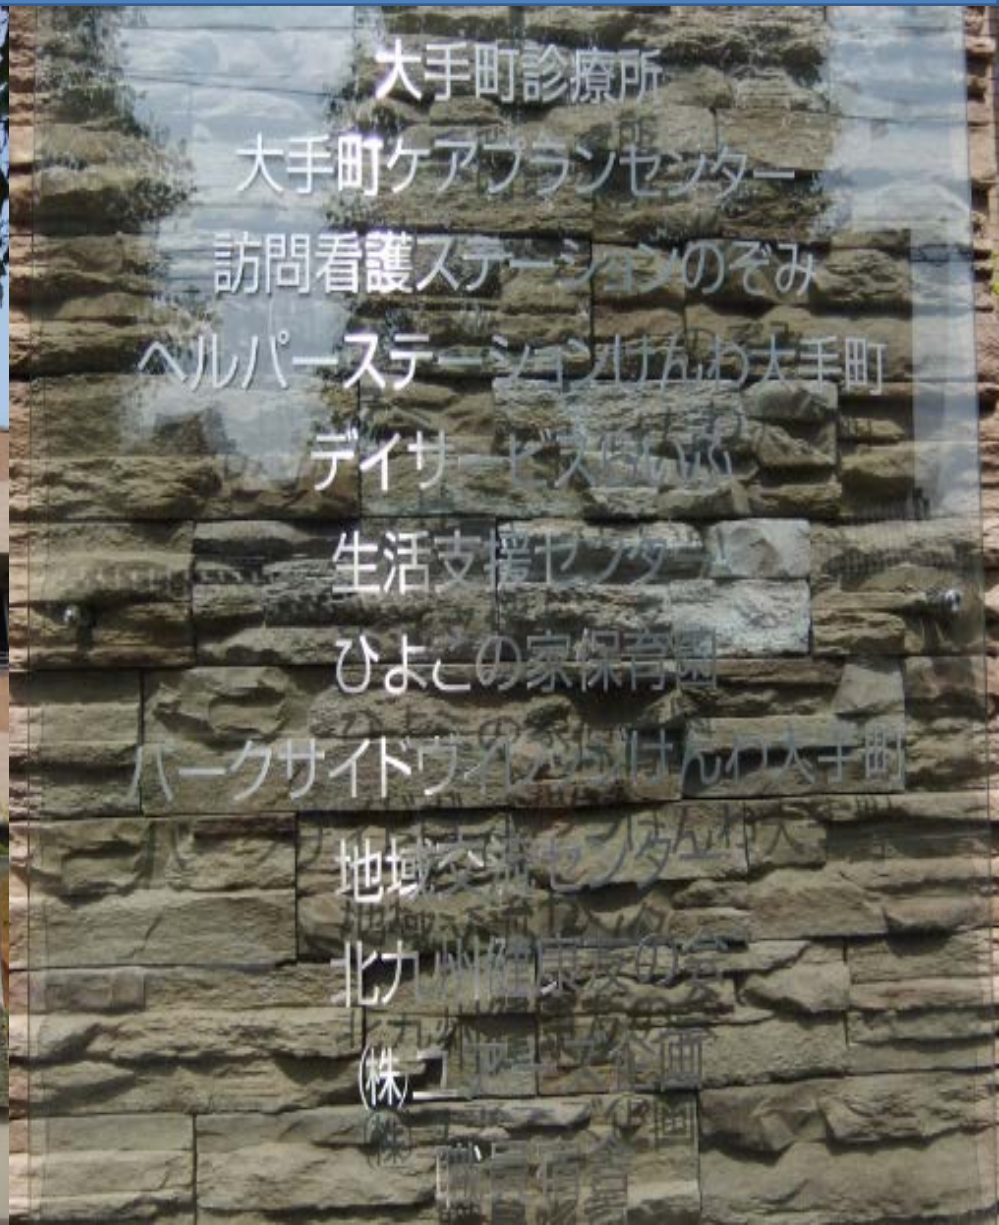 大手町診療所
大手町ケアプランセンター
訪問看護ステーションのぞみ
ヘルパーステーションけんわ大手町
デイサービスけいふ
生活支援センター
ひよこの家保育園
パークサイドヴィレッジけんわ大手町
地域交流センター
北九州健康友の会
㈱ユアーズ企画
職員宿舎